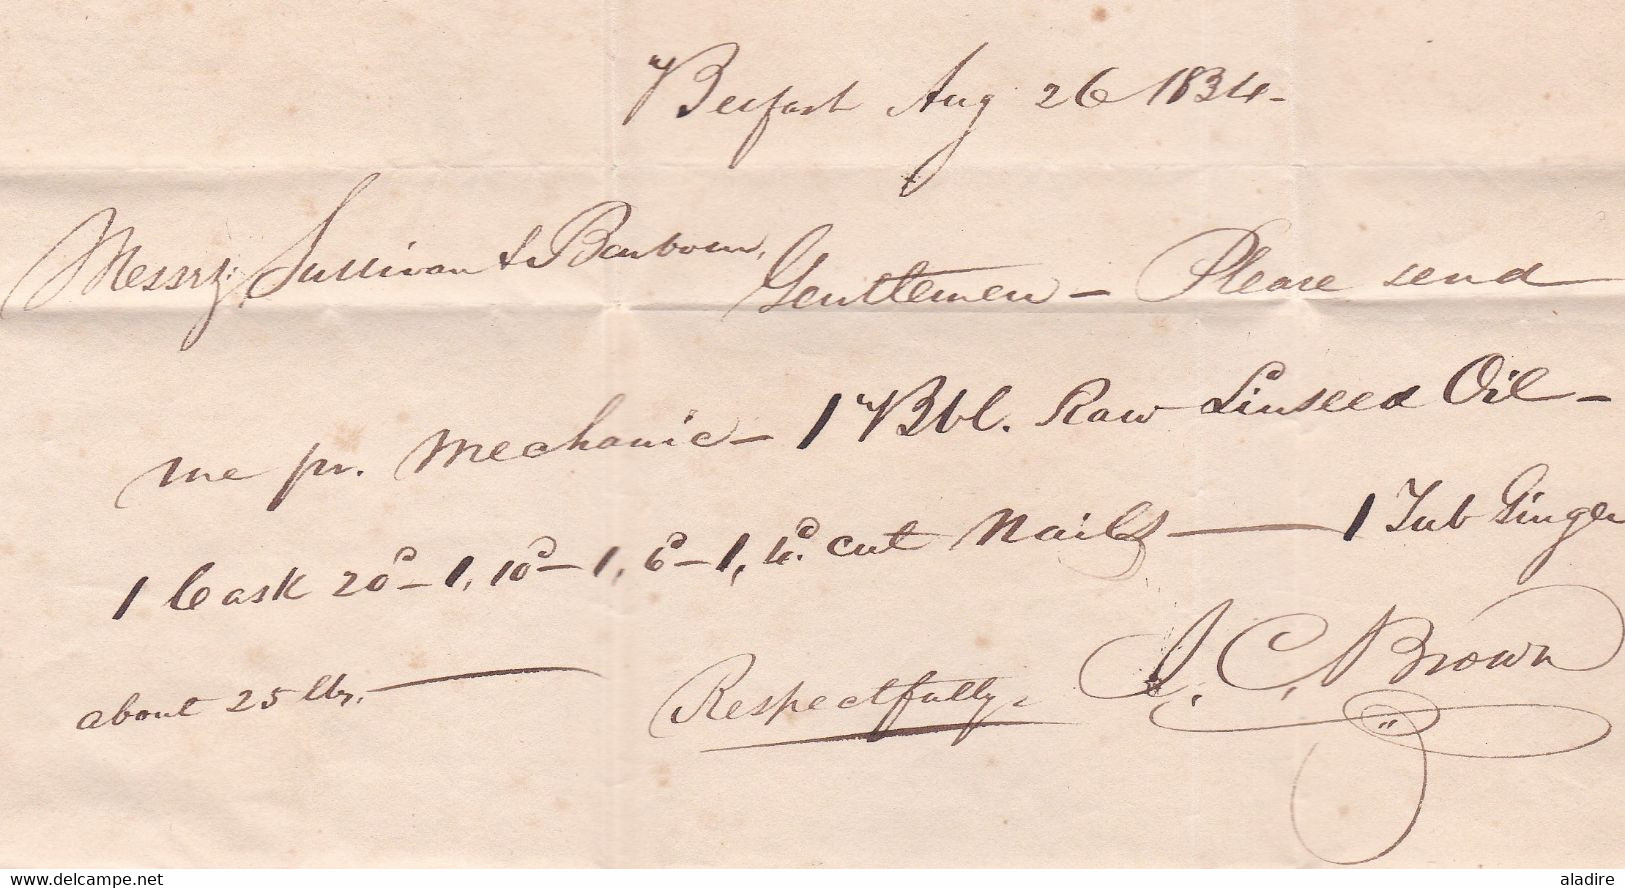 Belfast Aug 26 1834-
Messrs. Sullivan & Barbour,
Gentlemen - Please send
me pr. Mechanic - 1 Bbl. Raw Linseed Oil -
1 Cask 20d - 1, 10d - 1, 6d - 1, 4d. cut Nails - 1 Tub Ginger
about 25 lbs. -
Respectfully, C. Brown
delcampe.net
aladire